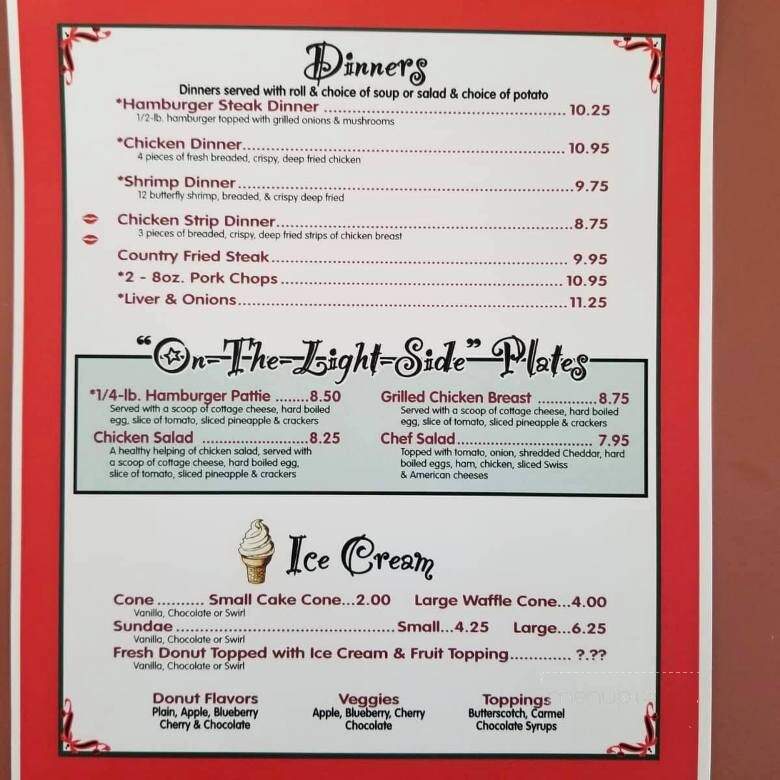 Dinners
Dinners served with roll & choice of soup or salad & choice of potato
*Hamburger Steak Dinner ........ 10.25
1/2-lb. hamburger topped with grilled onions & mushrooms
*Chicken Dinner........ 10.95
4 pieces of fresh breaded, crispy, deep fried chicken
*Shrimp Dinner........9.75
12 butterfly shrimp, breaded, & crispy deep fried
Chicken Strip Dinner........8.75
3 pieces of breaded, crispy, deep fried strips of chicken breast
Country Fried Steak........ 9.95
*2 - 8oz. Pork Chops........ 10.95
*Liver & Onions........ 11.25
"On-The-Light-Side" Plates
*1/4-lb. Hamburger Pattie ........8.50
Served with a scoop of cottage cheese, hard boiled
egg, slice of tomato, sliced pineapple & crackers
Chicken Salad ........8.25
A healthy helping of chicken salad, served with
a scoop of cottage cheese, hard boiled egg,
slice of tomato, sliced pineapple & crackers
Grilled Chicken Breast ........8.75
Served with a scoop of cottage cheese, hard boiled
egg, slice of tomato, sliced pineapple & crackers
Chef Salad........ 7.95
Topped with tomato, onion, shredded Cheddar, hard
boiled eggs, ham, chicken, sliced Swiss
& American cheeses
Ice Cream
Cone .......... Small Cake Cone...2.00 Large Waffle Cone...4.00
Vanilla, Chocolate or Swirl
Sundae ........ Small...4.25 Large...6.25
Vanilla, Chocolate or Swirl
Fresh Donut Topped with Ice Cream & Fruit Topping............ ?.??
Vanilla, Chocolate or Swirl
Donut Flavors
Plain, Apple, Blueberry
Cherry & Chocolate
Veggies
Apple, Blueberry, Cherry
Chocolate
Toppings
Butterscotch, Carmel
Chocolate Syrups